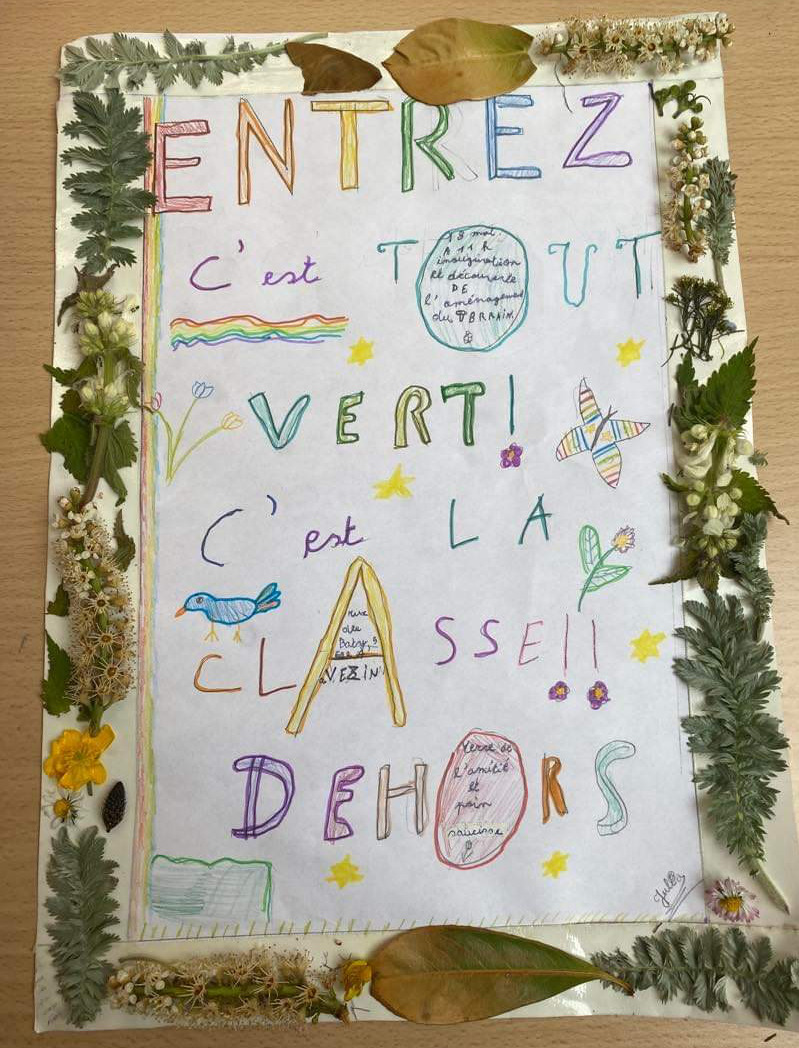 ENTREZ
C'est TOUT
13 mai
A 11 h
inauguration
et découverte
DE
l'aménagement
du TERRAIN
VERT!
C'est LA
CLASSE!!
rue
du
Baty, 5
à VEZIN
DEHORS
Verre de
l'amitié
et
pain
saucisse